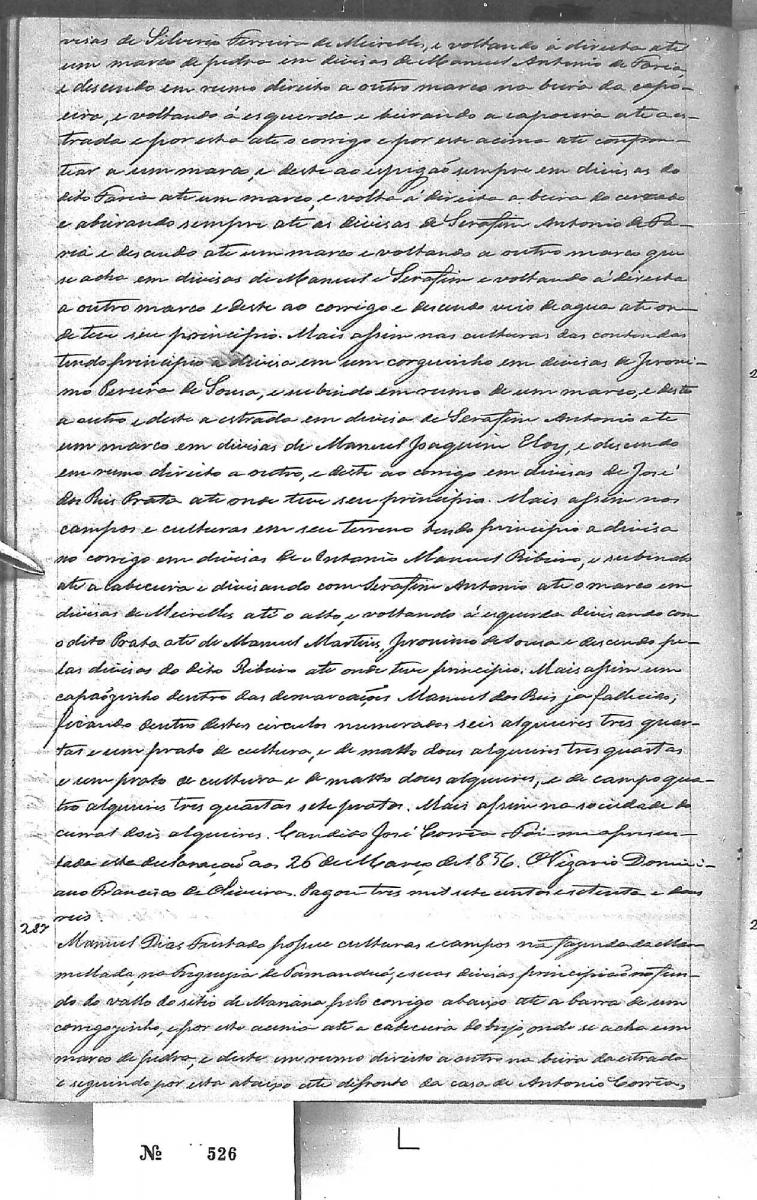 visas de Silverio Ferreira de Meirelles, e voltando á direita até
um marco de pedra em divisas de Manuel Antonio de Faria,
e descendo em rumo direito a outro marco na beira da capo-
eira, e voltando á esquerda e beirando a capoeira até a es-
trada e por esta até o corrigo e por este acima até confron-
tiar a um marco, e deste ao espigaõ sempre em divisas do
dito Faria até um marco, e volta á direita a beira do cerrado
e abeirando sempre até as divisas de Serafim Antonio de Fa-
ria e descendo até um marco e voltando a outro marco que
se acha em divisas de Manuel e Serafim e voltando á direita
a outro marco e deste ao corrigo e descendo veio de agua até on-
de teve seu principio. Mais assim nas culturas das contendas
tendo principio a divisa em um corguinho em divisas de Jeroni-
mo Pereira de Sousa, e subindo em rumo de um marco, e deste
a outro e deste a estrada em divisa de Serafim Antonio até
um marco em divisas de Manuel Joaquim Eloy, e descendo
em rumo direito a outro, e deste ao corrigo em divisas de José
dos Reis Prata até onde teve seu principio. Mais assim nos
campos e culturas em seu terreno tendo principio a divisa
no corrigo em divisas de Antonio Manuel Ribeiro, e subindo
até a cabeceira e divisando com Serafim Antonio até o marco em
divisas de Meirelles até o alto, e voltando á esquerda divisando com
o dito Prata até de Manuel Martins, Jeronimo de Sousa e descendo pe-
las divisas do dito Ribeiro até onde teve principio. Mais assim um
capaõzinho dentro das demarcações Manuel dos Reis ja fallecido;
ficando dentro destes circulos numerados seis alqueires tres quar-
tas e um prato de cultura, e de matto dous alqueires tres quartas
e um prato de cultura e de matto dous alqueires, e de campo qua-
tro alqueires tres quartas sete pratos. Mais assim na sociedade do
curral dois alqueires. Candido José Corrêa. Foi-me apresen-
tada esta declaraçaõ aos 26 de Março de 1856. O Vigario Domici-
ano Francisco de Oliveira. Pagou tres mil sete centos e setenta e dous
reis.
287
Manuel Dias Furtado possue culturas e campos na fazenda da Mar-
mellada, na Freguezia de Tamanduá, e suas divisas principiaõ no fun-
do do vallo do sitio de Mariana pelo corrigo abaixo até a barra de um
corregozinho, e por este acima até a cabeceira do brejo, onde se acha um
marco de pedra, e deste em rumo direito a outro na beira da estrada
e seguindo por esta abaixo até difronte da casa de Antonio Corrêa,
Nº 526
L